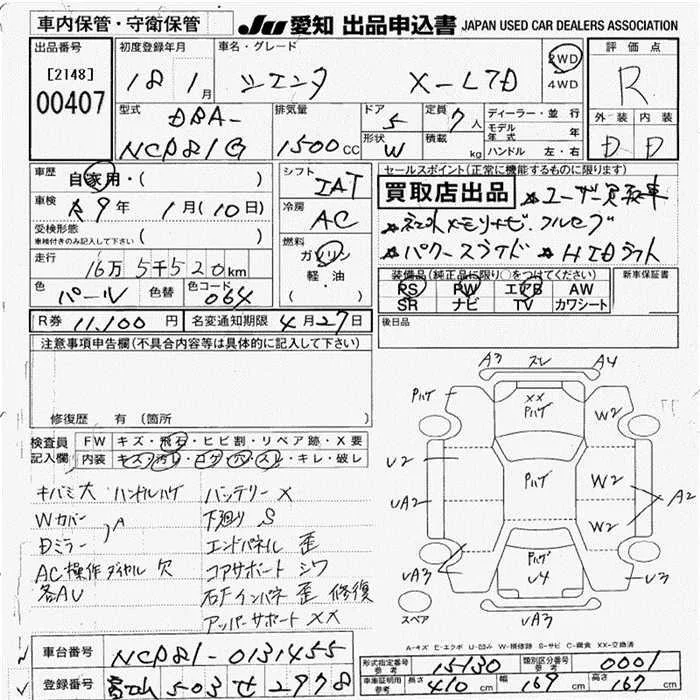 車内保管・守衛保管
JU 愛知 出品申込書 JAPAN USED CAR DEALERS ASSOCIATION
出品番号
[2148]
00407
初度登録年月
18年 1月
車名・グレード
シエンタ X-LTD
2WD
4WD
評価点
R
外装 内装
D D
型式
DBA-
NCP81G
排気量
1500cc
ドア
5
形状
W
定員
7人
積載
kg
ディーラー・並行
モデル年式 年
ハンドル 左・右
車歴
自家用・( )
車検
R9年 1月(10日)
受検形態
車検付きのみ記入して下さい ( )
走行
16万5千520km
色
パール
色替
色コード
064
シフト
IAT
冷房
AC
燃料
ガソリン
軽油
( ・ )
セールスポイント(正常に機能するものに限ります)
買取店出品 ☆ユーザー買取車
☆ネコメモリナビ.フルセグ
☆パワースライド ☆HIDライト
装備品(純正品に限り○をつけてください)
PS PW エアB AW
SR ナビ TV カワシート
新車保証書
後日品
R券 11,100円 名変通知期限 4月27日
注意事項申告欄(不具合内容等は具体的に記入して下さい)
修復歴 有(箇所 )
検査員記入欄
FW キズ・飛石・ヒビ割・リペア跡・X要
内装 キズ・汚レ・コゲ・穴・スレ・キレ・破レ
キバミ大 ハンドルハゲ
Wカバー
Dミラー A
AC操作ダイヤル欠
各AU
バッテリーX
下廻りS
エンドパネル 歪
コアサポート シワ
右Fインパネ 歪 修復
アッパーサポート XX
A3 スレ A4
Pハゲ
XX
Pハゲ
W2
U2
Pハゲ
W2
UA2
W2
A2
Pハゲ
U4
UA3
U3
UA3
スペア
A-キズ E-エクボ U-凹み W-補修跡 S-サビ C-腐食 XX-交換済
車台番号 NCP81-0131455
登録番号 503 せ 2978
形式指定番号 参考 15130
類別区分番号 参考 0001
車庫証明用 参考
長さ 410cm
幅 169cm
高さ 167cm